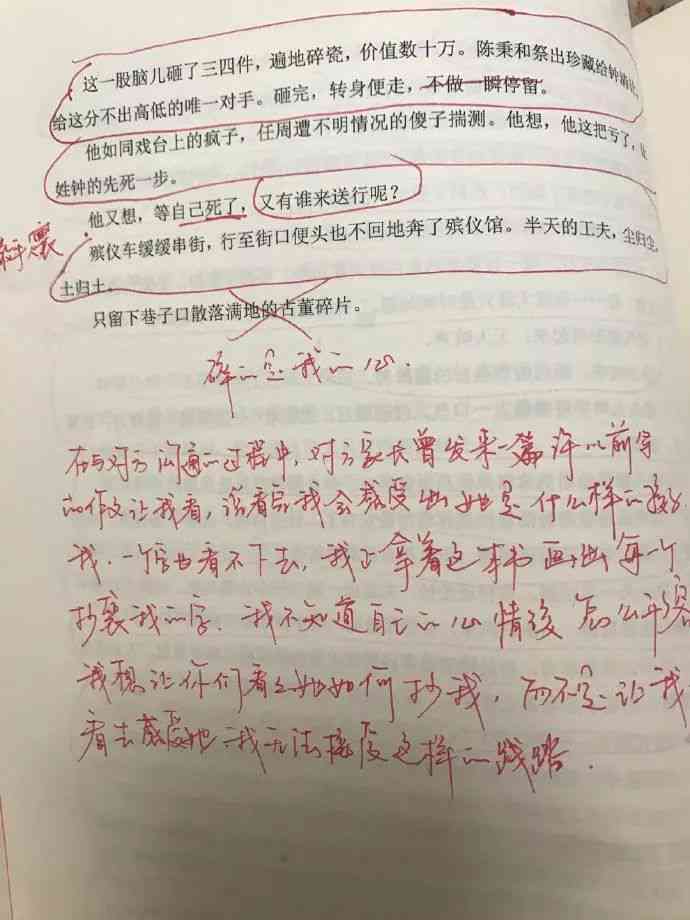 这一股脑儿砸了三四件，遍地碎瓷，价值数十万。陈秉和祭出珍藏给钟
给这分不出高低的唯一对手。砸完，转身便走，不做一瞬停留。
他如同戏台上的疯子，任周遭不明情况的傻子揣测。他想，他这把亏了，让
姓钟的先死一步。
他又想，等自己死了，又有谁来送行呢？
殡仪车缓缓串街，行至街口便头也不回地奔了殡仪馆。半天的工夫，尘归尘，
土归土。
只留下巷子口散落满地的古董碎片。
碎的是我的心.
在与对方沟通的过程中，对方家长曾发来一篇许以前写
的作文让我看，说看后我会感受出她是什么样的孩子
我.一个字也看不下去，我正拿着这本书画出每一个
抄袭我的字.我不知道自己的心情该怎么平缓
我想让你们看看她如何抄我，而不是让我
看去感受她.我无法接受这样的践踏.